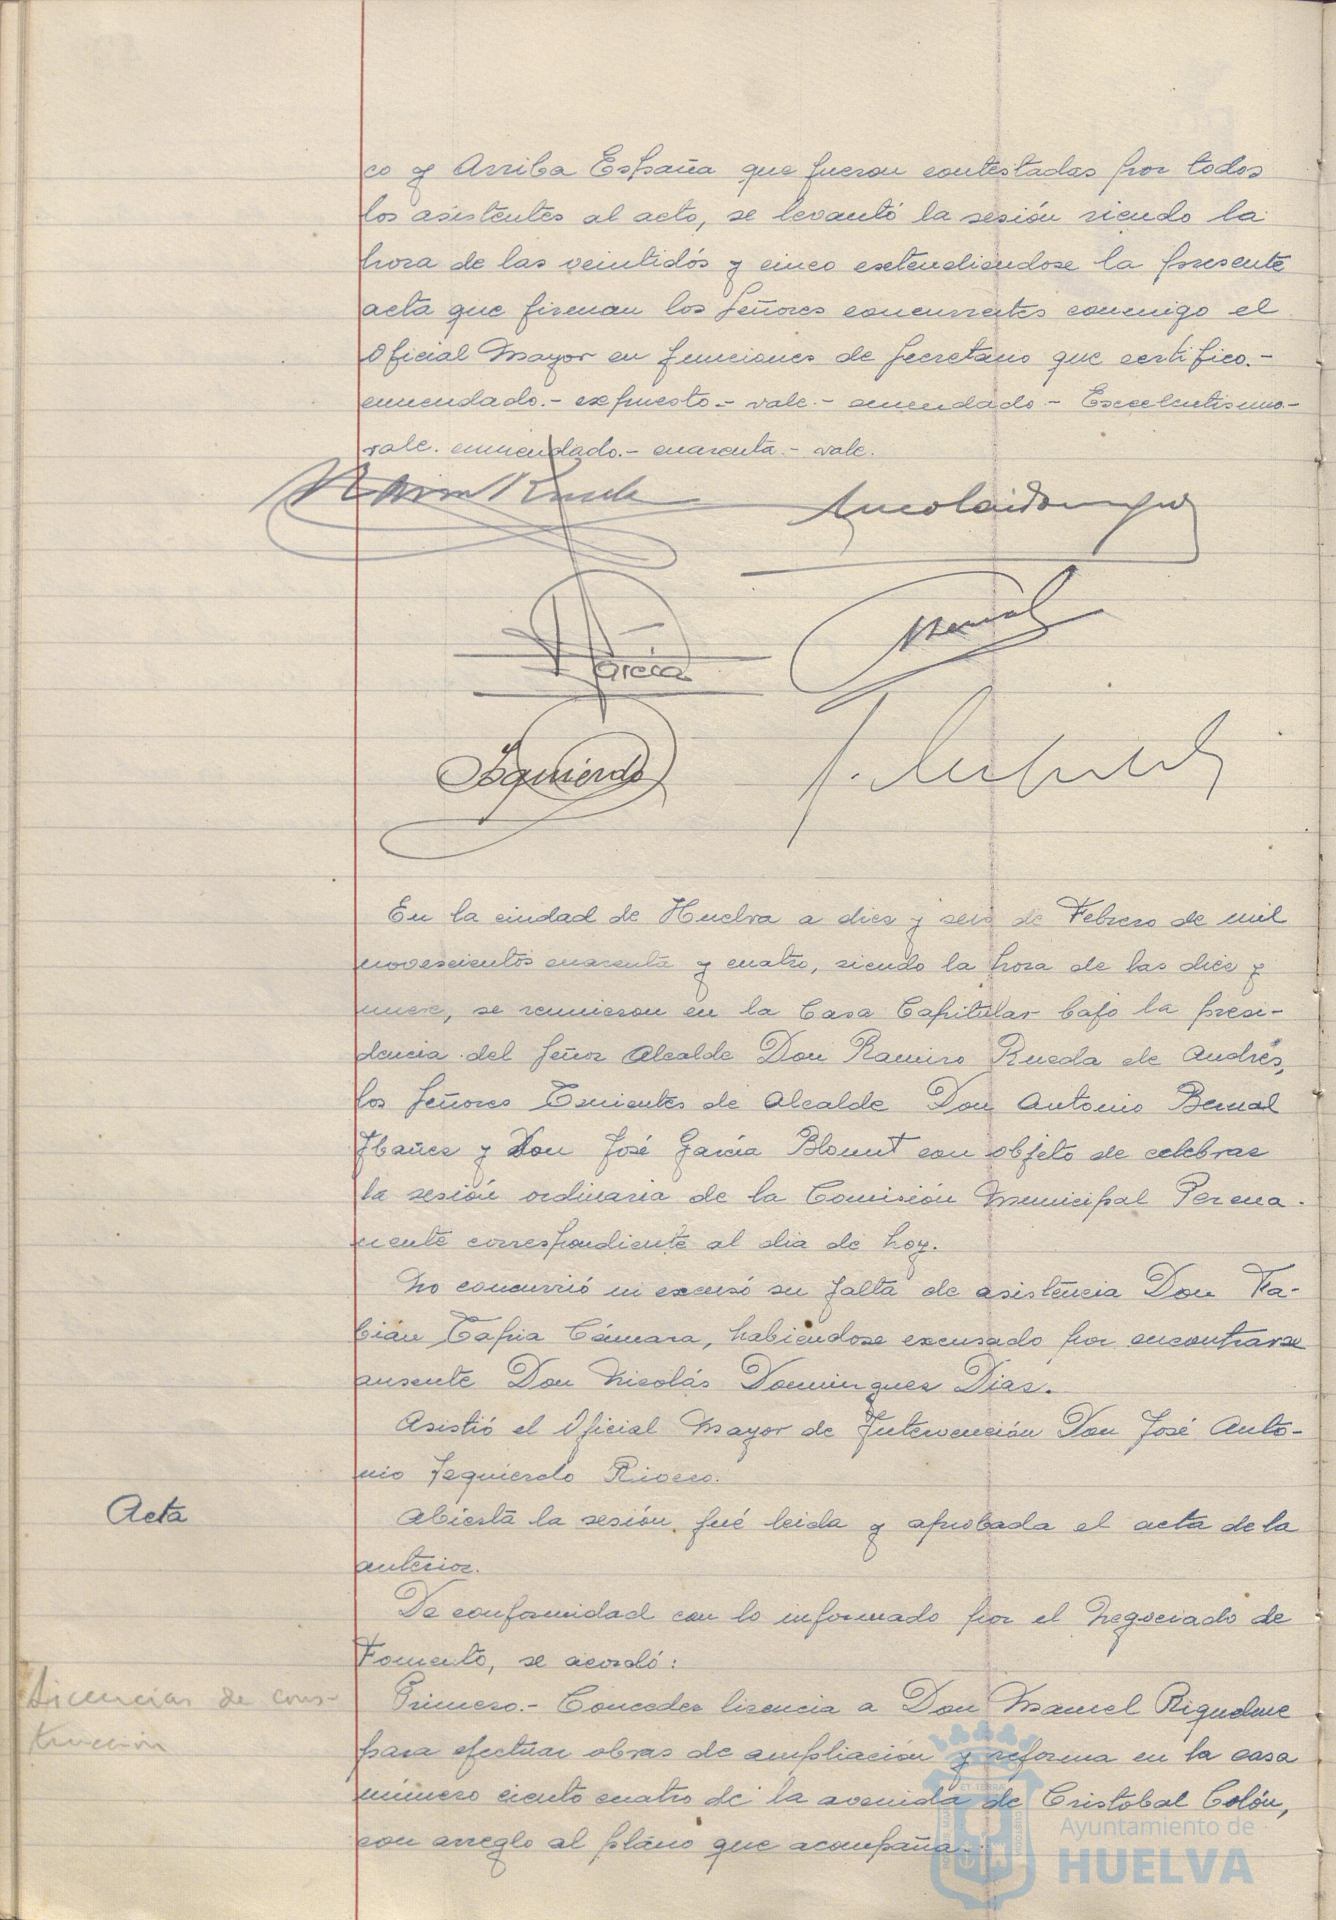 co y Arriba España que fueron contestadas por todos
los asistentes al acto, se levantó la sesión siendo la
hora de las veintidós y cinco extendiendose la presente
acta que firman los Señores concurrentes conmigo el
Oficial Mayor en funciones de Secretario que certifico.-
enmendado.- expuesto.- vale.- enmendado - Excelentísimo-
vale. enmendado.- cuarenta.- vale.
Ramiro Rueda
Nicolás Domínguez
García
Bernal
Izquierdo
En la ciudad de Huelva a diez y seis de Febrero de mil
novescientos cuarenta y cuatro, siendo la hora de las diez y
nueve, se reunieron en la Casa Capitular bajo la presi-
dencia del Señor Alcalde Don Ramiro Rueda de Andrés,
los Señores Tenientes de Alcalde Don Antonio Bernal
Ibañez y Don José García Blount con objeto de celebrar
la sesión ordinaria de la Comisión Municipal Perma-
nente correspondiente al dia de hoy.
No concurrió ni excusó su falta de asistencia Don Fa-
bian Tapia Cámara, habiendose excusado por encontrarse
ausente Don Nicolás Dominguez Dias.
Asistió el Oficial Mayor de Intervención Don José Anto-
nio Izquierdo Rioero.
Acta
Abierta la sesión fué leida y aprobada el acta de la
anterior.
De conformidad con lo informado por el Negociado de
Fomento, se acordó:
Licencias de cons-
trucción
Primero.- Conceder licencia a Don Manuel Riquelme
para efectuar obras de ampliación y reforma en la casa
número ciento cuatro de la avenida de Cristobal Colón,
con arreglo al plano que acompaña.-
Ayuntamiento de
HUELVA